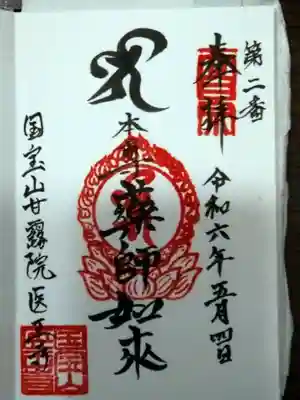 第二番
奉拝
令和六年五月四日
本尊
薬師如来
国宝山甘露院医王寺